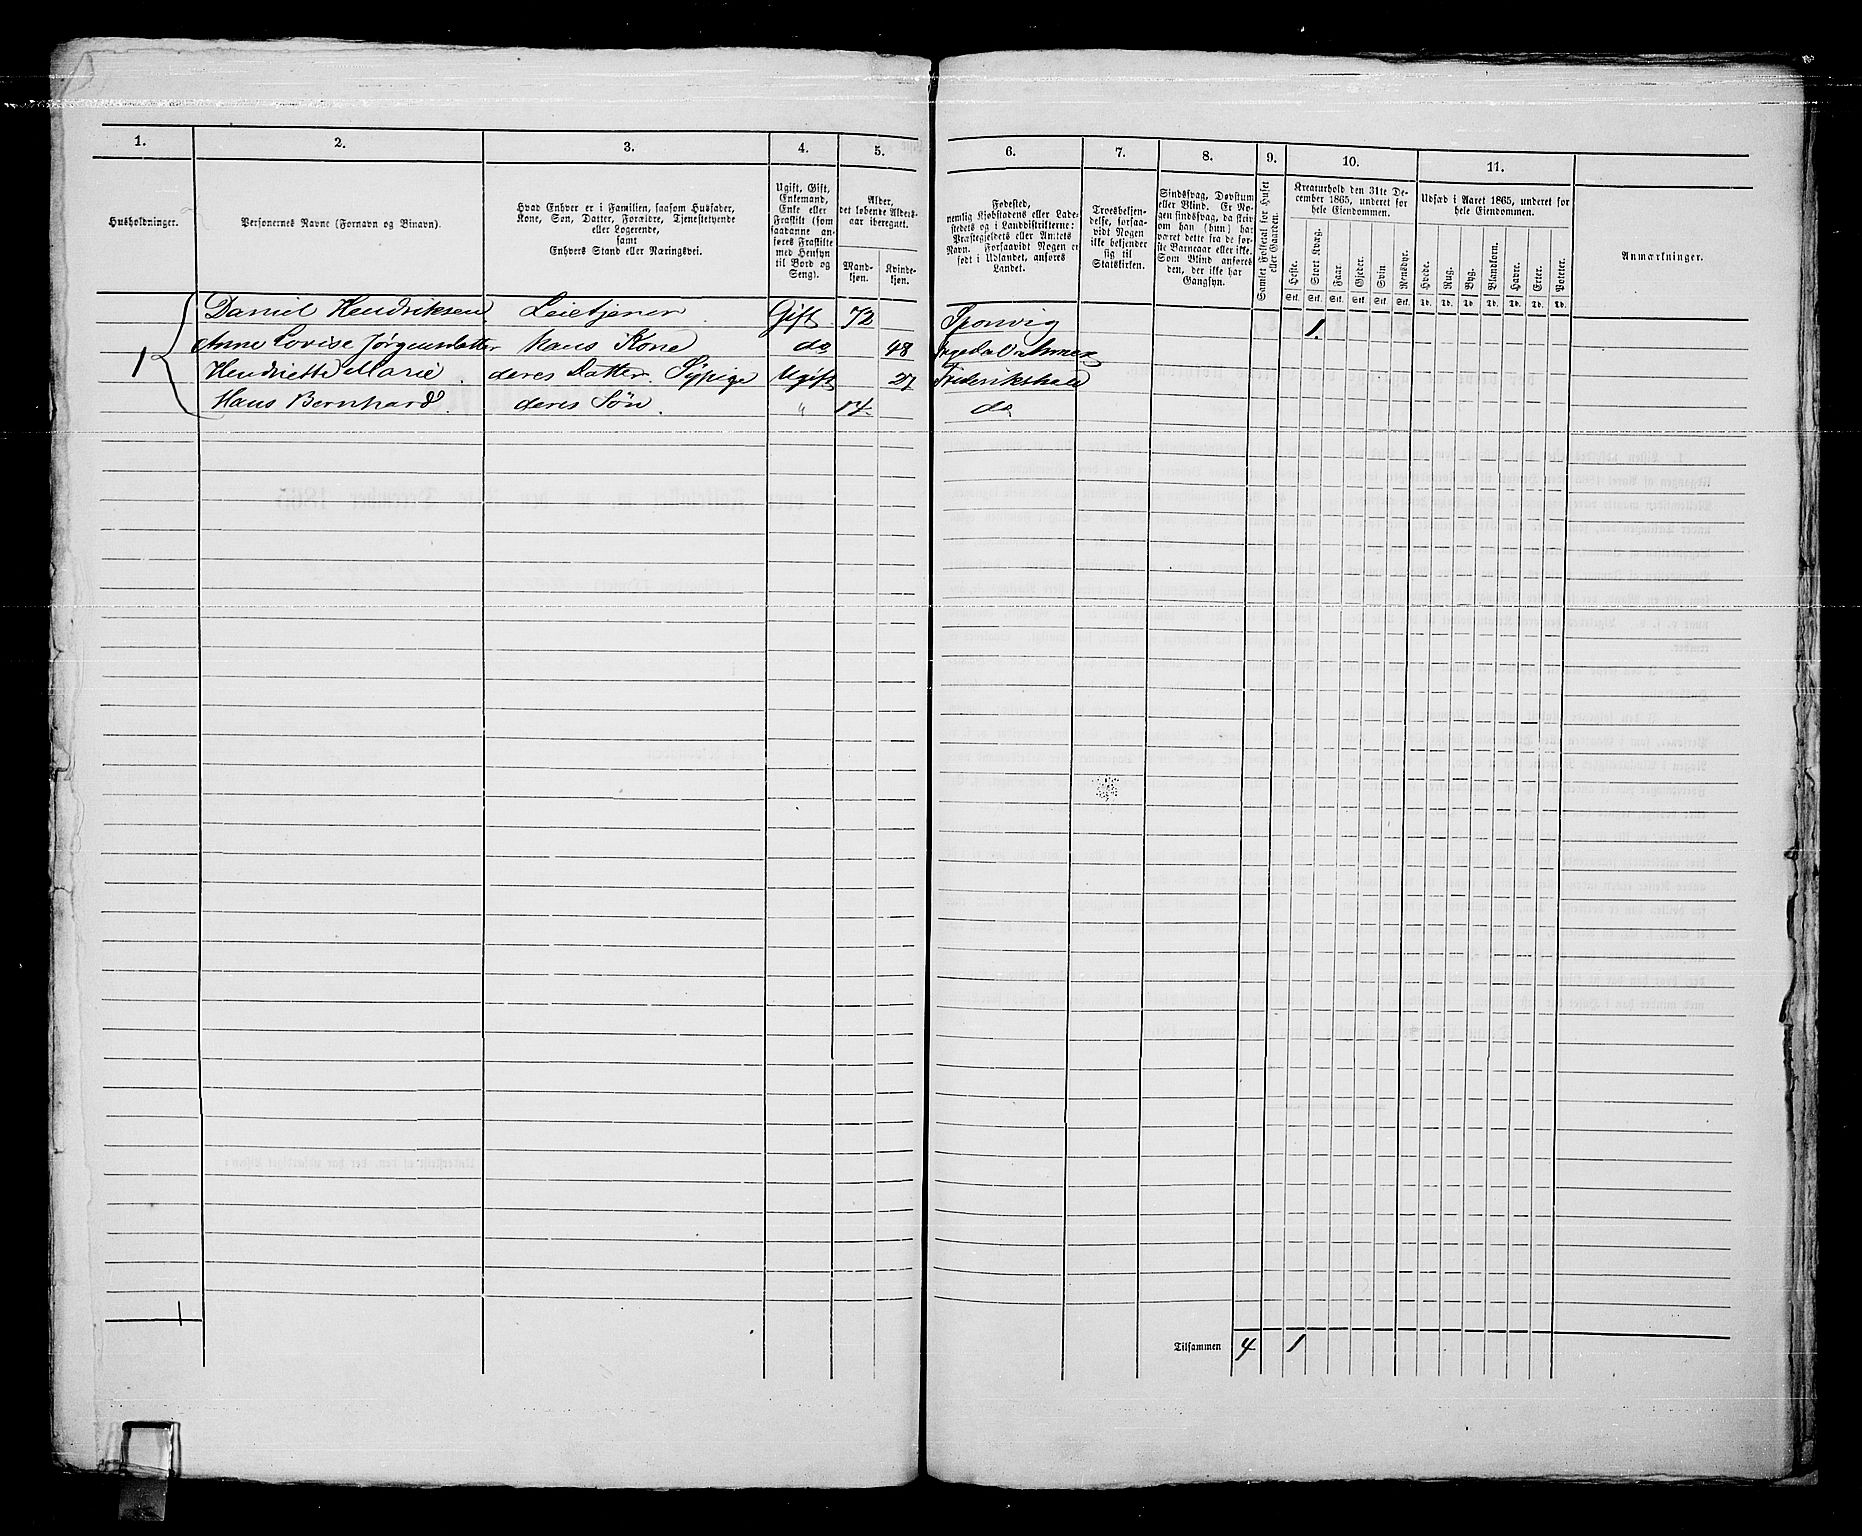 1.
2.
3.
4.
5.
6.
7.
8.
9.
10.
11.
Husholdninger.
Personernes Navne (Fornavn og Binavn).
Hvad Enhver er i Familien, saasom Husfader,
Kone, Søn, Datter, Forældre, Tjenestetyende
eller Logerende,
samt
Enhvers Stand eller Næringsvei.
Ugift, Gift,
Enkemand,
Enke eller
Fraskilt (som
saadanne an-
føres Fraskilte
med Hensyn
til Bord og
Seng).
Alder,
det løbende Alders-
aar iberegnet.
Mand-
kjøn.
Kvinde-
kjøn.
Fødested,
nemlig Kjøbstadens eller Lade-
stedets og i Landdistrikterne:
Præstegjeldets eller Amtets
Navn. Forsaavidt Nogen er
født i Udlandet, anføres
Landet.
Troesbekjen-
delse, forsaa-
vidt Nogen
ikke bekjender
sig til
Statskirken.
Sindssvag, Døvstum
eller Blind. Er No-
gen sindssvag, da skriv
om han (hun) ha-
været dette fra de før-
ste Barneaar eller ikke.
Som Blind anføres
den, der ikke har
Gangsyn.
Samlet Folketal for Huset
eller Gaarden.
Kreaturhold den 31te De-
cember 1865, underet for
hele Eiendommen.
Heste. Stort Kvæg. Faar. Gjeder. Svin. Rensdyr.
Stk. Stk. Stk. Stk. Stk. Stk.
Udsæd i Aaret 1865, underet for
hele Eiendommen.
Hvede. Rug. Byg. Blandkorn. Havre. Erter. Poteter.
Td. Td. Td. Td. Td. Td. Td.
Anmærkninger.
Daniel Hendriksen. Leietjener. Gift. 72 1.
1 Anne Lovise Jørgensdatter hans Kone do 48
Henriette Marie. deres Datter. Sypige Ugift 27 Frederikshald
Hans Bernhard. deres Søn. " 14 do
1
Tilsammen 4 1